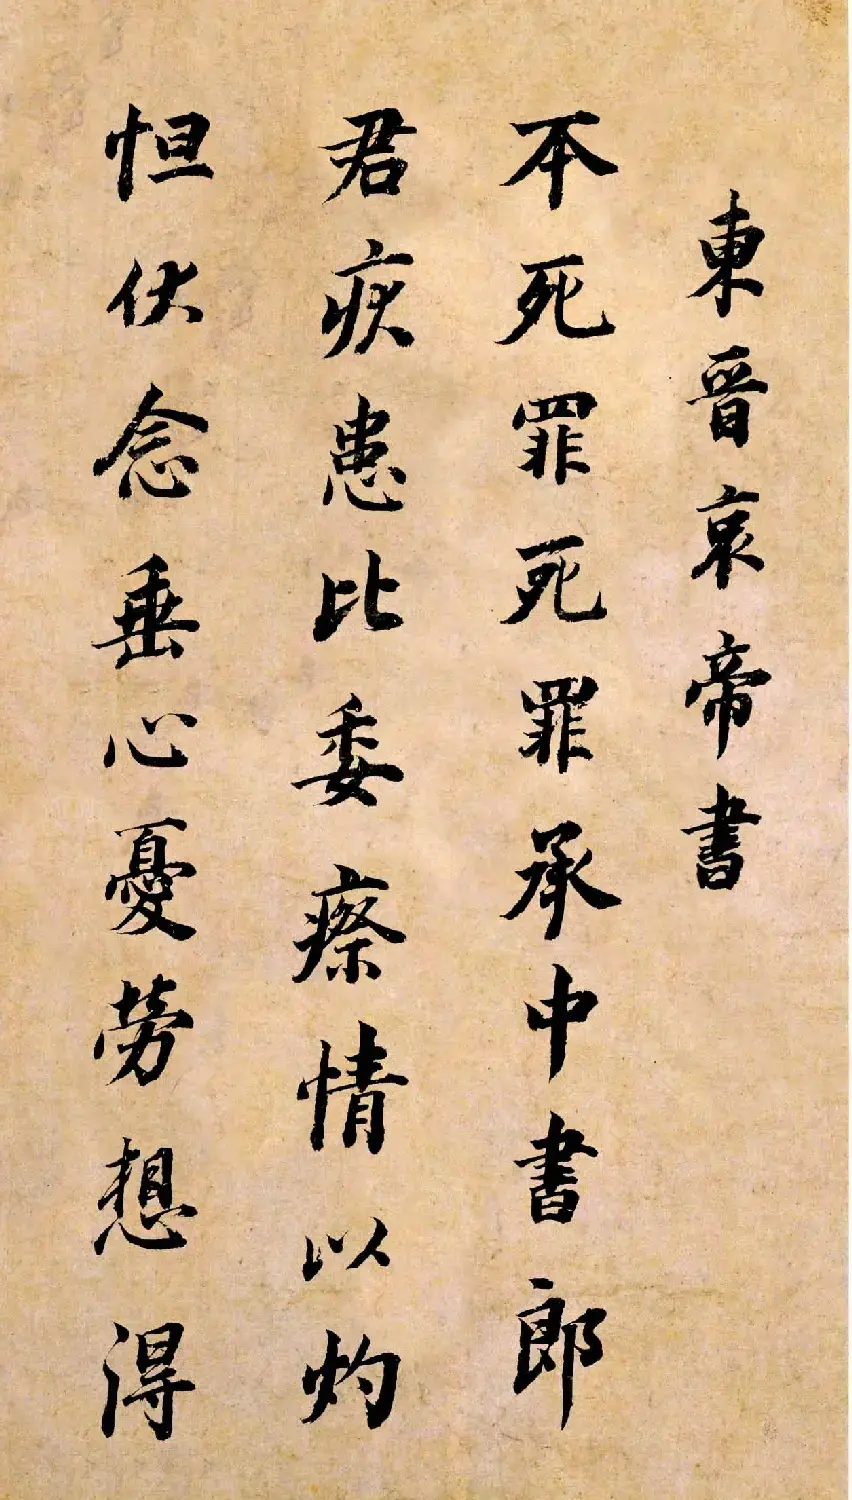 東晉哀帝書
不死罪死罪承中書郎
君疾患比委瘵情以灼
怛伏念垂心憂勞想得